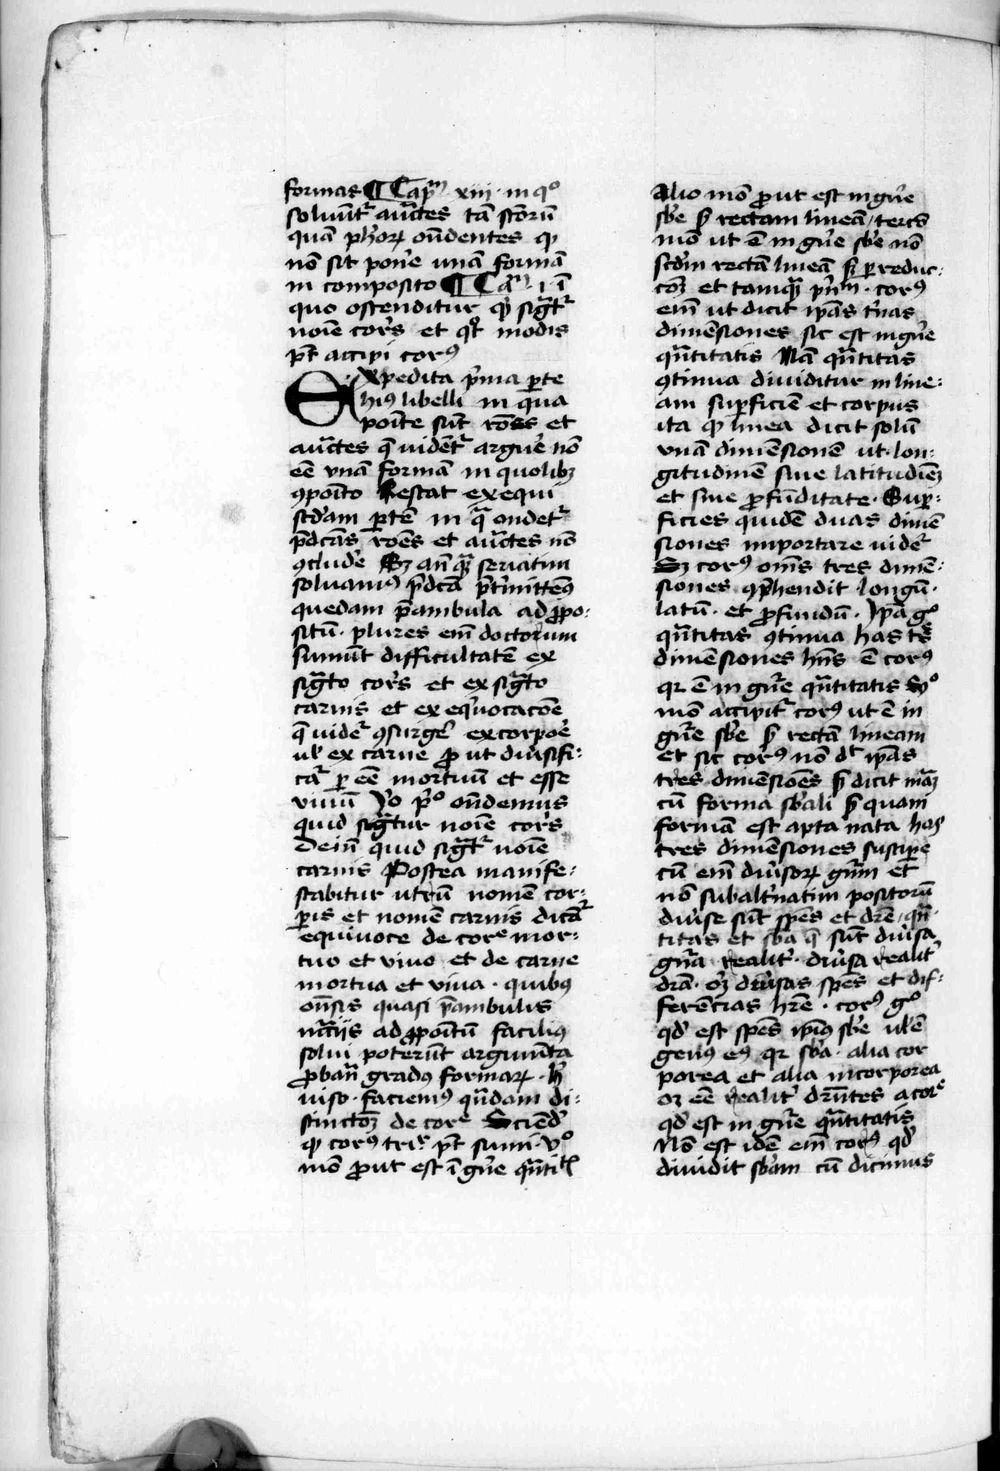 formas ¶ Capᵐ xiii · in qͦ
soluũt᷑ auctẽs tã sc̃orũ
quã ph̃orꝝ oñdentes ꝙ
nõ sit pon̾e unã formã
in composito ¶ Caᵐ · i · ĩ
quo ostenditur qͥd sigt᷑
noĩe corꝑis et qͦt modis
pt̃ accipi corꝰ
Expedita pͥma ꝑte
hiꝰ libelli in qua
poĩte sũt rõẽs et
auctẽs q̃ uident᷑ argu̾e nõ
eẽ vnã formã in quolibꝫ
ꝯpoĩto Restat exequi
scd̾am ꝑtẽ in qͣ ondet᷑
p̃dc̃as roẽs et auctẽs nõ
ꝯclud̾e Sꝫ anͥqͣꝫ seriatim
soluamꝰ p̃dc̃a p̃t̾mittemꝰ
quedam p̃ambula ad ꝓpo⸗
situ᷈ · plures eni᷈ doctorum
sumũt difficultatẽ ex
sigͣto corꝑis et ex sigͣto
carnis et ex eqͥuocacõe
q̃ uidet᷑ ꝯsurge̾ ex corpoe̾
ul̾ ex carne ꝓut diu̾sifi⸗
cat᷑ ꝑ eẽ mortuũ et esse
viuũ Iͦo pͥͦ oñdemus
quid sigͣtur noĩe corꝑis
Deiñ quid sigͣt᷑ noĩe
carnis Postea manife⸗
stabitur utrũ nomẽ cor⸗
ꝑis et nomẽ carnis dicat᷑
equiuoce de corꝑe mor⸗
tuo et viuo et de carne
mortua et viua · quibꝰ
oñsis quasi p̃ambulis
ad ꝓpoĩtũ faciliꝰ
solui poterũt argumẽta
ꝓbañ gradꝰ formarꝝ ·
uiso · faciemꝰ qñdam di⸗
stinctõꝫ de corꝑe Sciend̾
ꝙ corꝰ tripͬ pt̃ sumi · vͦ
mõ ꝓut est ĩ gn̾e qͣntitͣ
Alio mõ ꝓut est in gn̾e
sb̾e s̾ rectam lineã / tercõ
mõ ut ẽ in gn̾e sb̾e nõ
scd̾m rectã lineã sꝫ ꝑ reduc⸗
cõꝫ et tamqͣꝫ pͥnᵐ · corꝰ
eni᷈ ut dicit ip̃as t̾nas
dimẽsiones sic est in gn̾e
qͣntitatis Nã qͣntitas
ꝯtinua diuiditur in line⸗
am suꝑficiẽ et corpus
ita ꝙ linea dicit solũ
vnã dimẽsionẽ ut · lon⸗
gitudinẽ siue latitudiẽꝫ
et siue ꝓfũditate · Suꝑ⸗
ficies quidẽ duas dimẽ
siones importare uidet᷑
Sꝫ corꝰ oĩs tres dimẽ⸗
siones ꝯp̃hendit longũ ·
latũ · et ꝓfundũ · Ip̃a gͦ
qͣntitas ꝯtinua has tͬs
dimẽsiones hñs ẽ corꝰ
qꝛ ẽ in gn̾e qͣntitatis Scͦ
mõ accipit᷑ corꝰ ut ẽ in
gn̾e sb̾e s̾ rectã lineam
et sic corꝰ nõ dͬ ip̃as
tres dimẽsiões sꝫ dicit mãꝫ
cũ forma sb̾ali s̾ quam
formã est apta nata has
tres dimẽsiones suscipe̾
cũ eni᷈ diu̾sorꝝ gn̾um et
nõ subalt̾natim positorũ
diu̾se sũt spẽs et drẽ / qͣn⸗
titas et sb̾a q̃ sũt diu̾sa
gn̾a realit᷑ · diu̾sa realit᷑
drã · oꝫ diu̾sas spẽs et dif⸗
ferẽcias hr̃e · corꝰ gͦ
qd̾ est spẽs ip̃iꝰ sb̾e ul̾ ẽ
genꝰ eiꝰ qꝛ sb̾a · alia cor
porea et alia incorporea
oꝫ eẽ realit᷑ drñtes a corꝑe
qd̾ est in gn̾e qͣntitatis
Nõ est idẽ eni᷈ corꝰ qd̾
diuidit sb̾am cũ dicimus